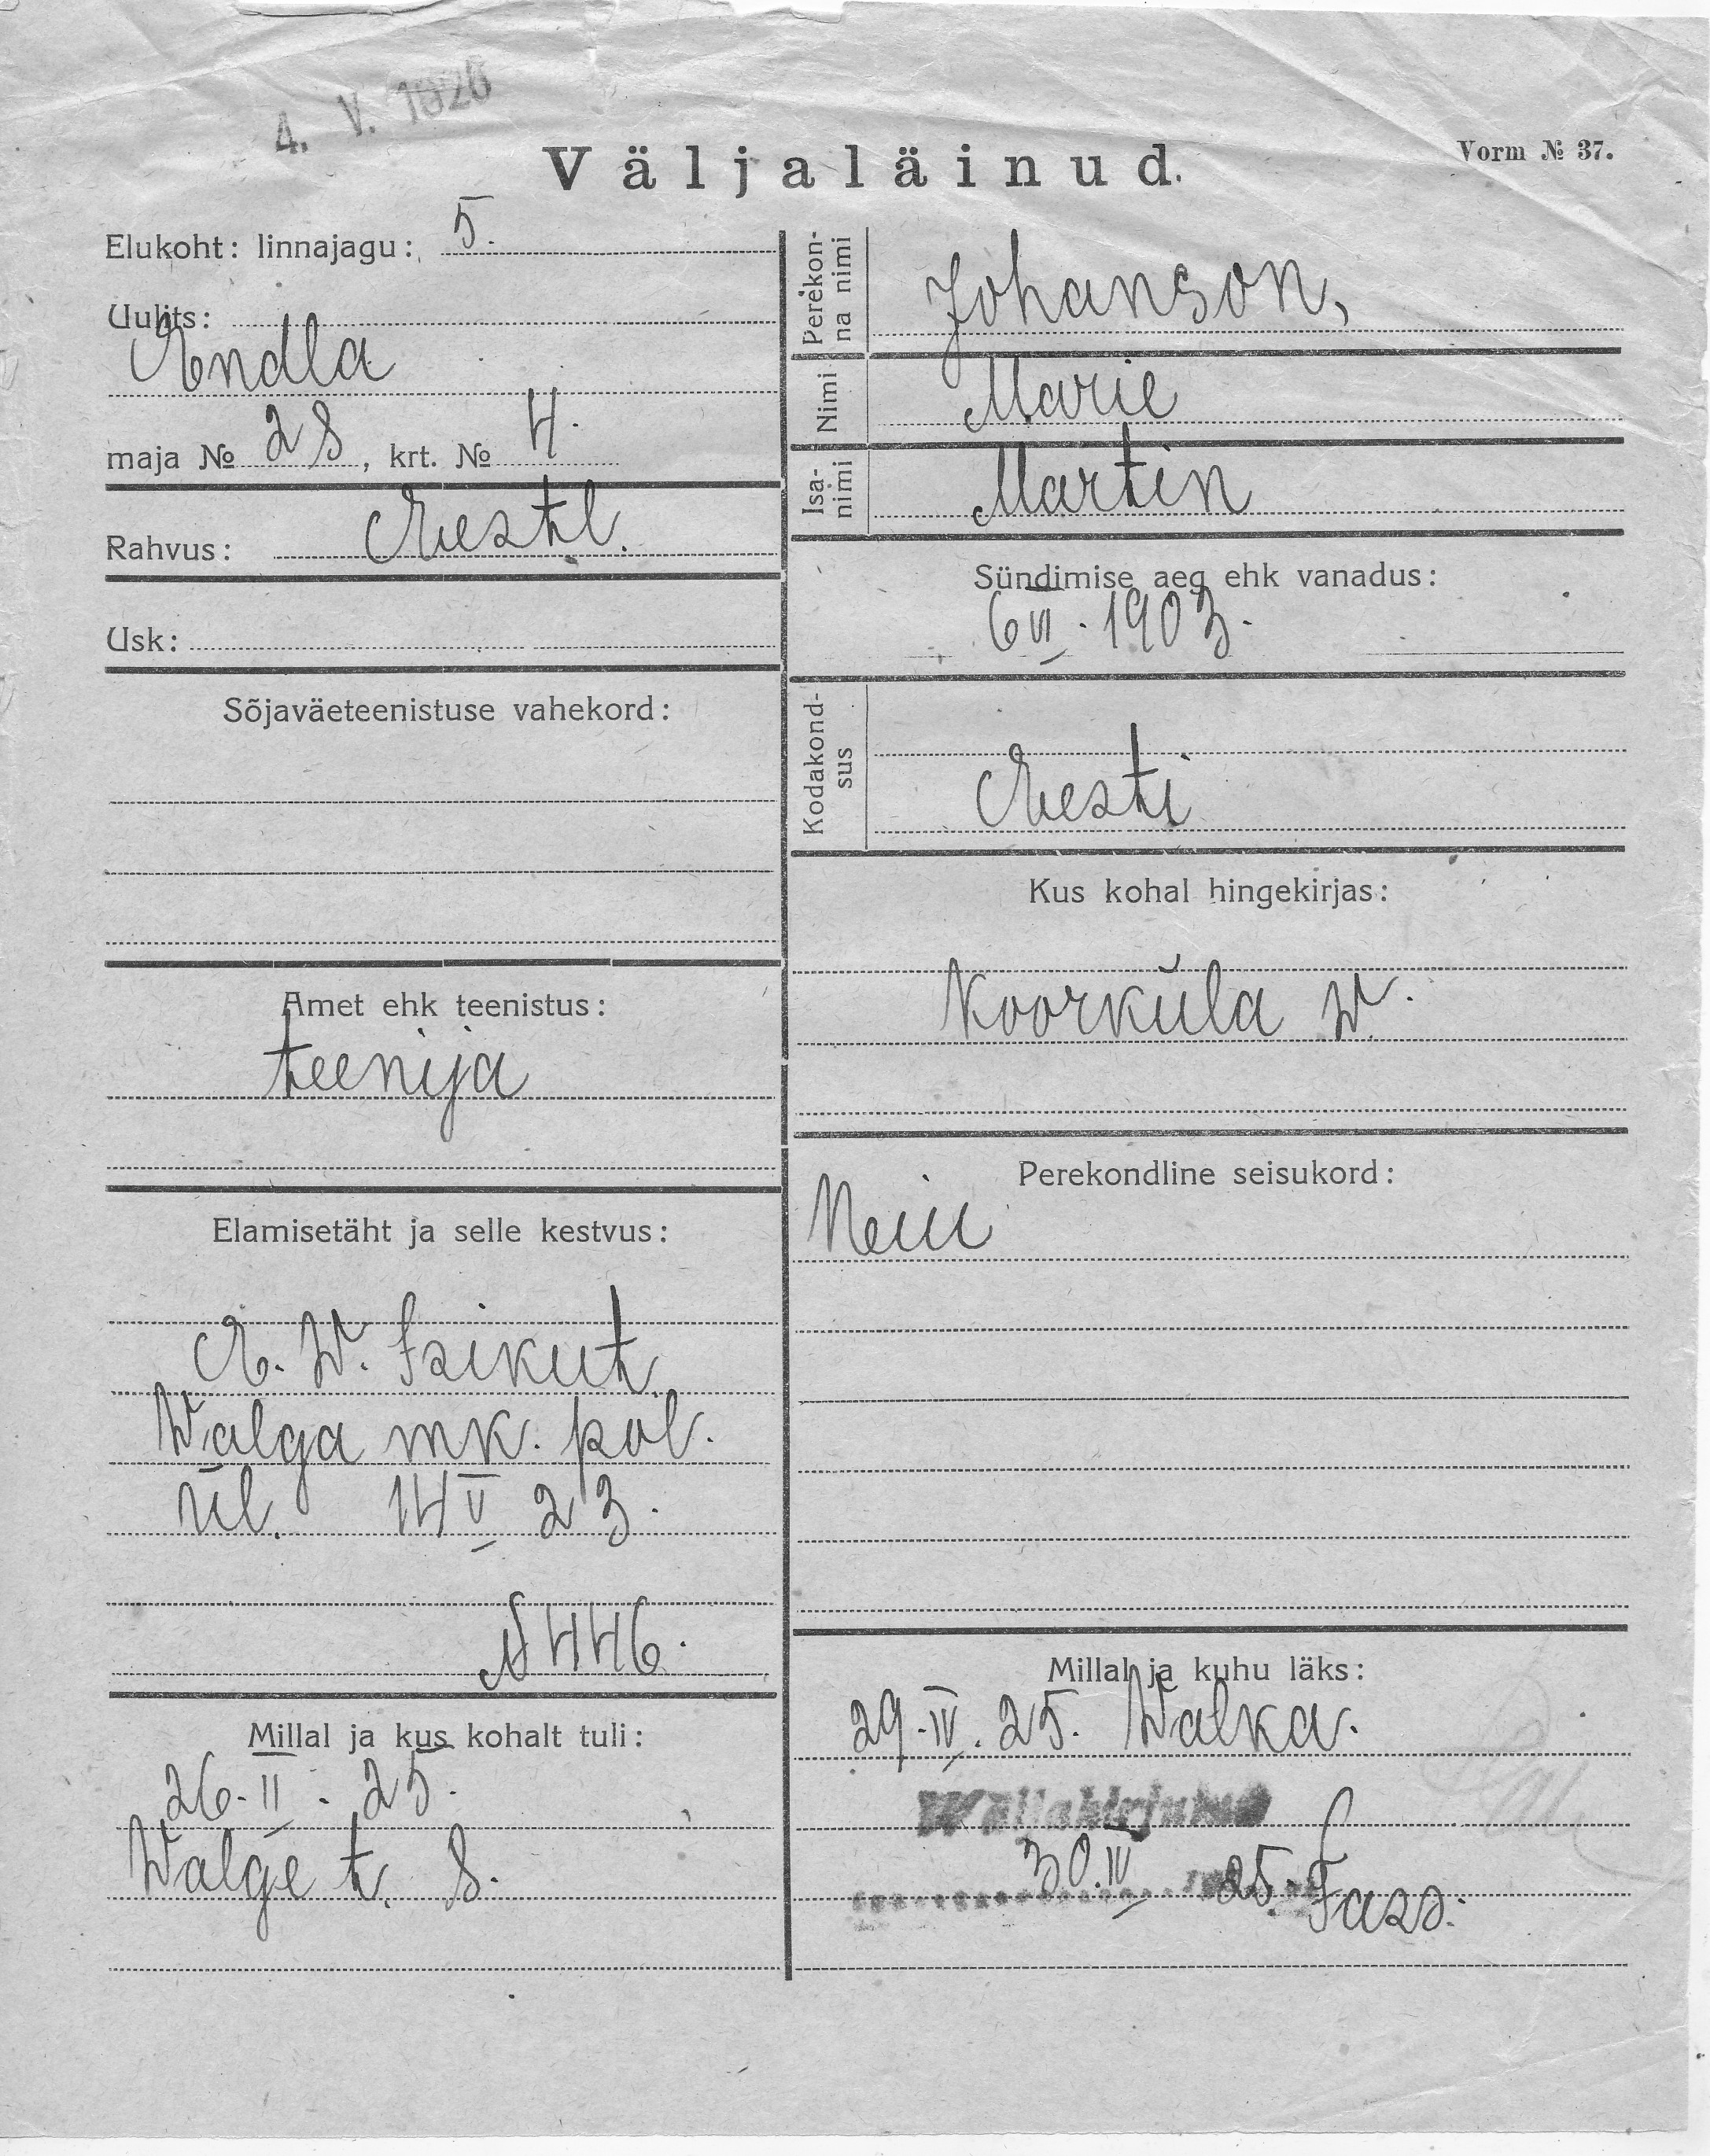 4. V. 1926
Väljaläinud.
Vorm № 37.
Elukoht: linnajagu: 5.
Uulits:
Endla
maja № 28, krt. № 4.
Rahvus: Eestl.
Usk:
Sõjaväeteenistuse vahekord:
Amet ehk teenistus:
teenija
Elamisetäht ja selle kestvus:
E. W. Isikut.
Walga mk. pol.
ül. 14 V 23.
N 446.
Millal ja kus kohalt tuli:
26. II. 25.
Walge t. 8.
Perekonna nimi
Johanson,
Nimi
Marie
Isanimi
Martin
Sündimise aeg ehk vanadus:
6 VI. 1903.
Kodakondsus
Eesti
Kus kohal hingekirjas:
Koorküla w.
Perekondline seisukord:
Neiu
Millal ja kuhu läks:
29. IV. 25. Walka.
30. IV 25.